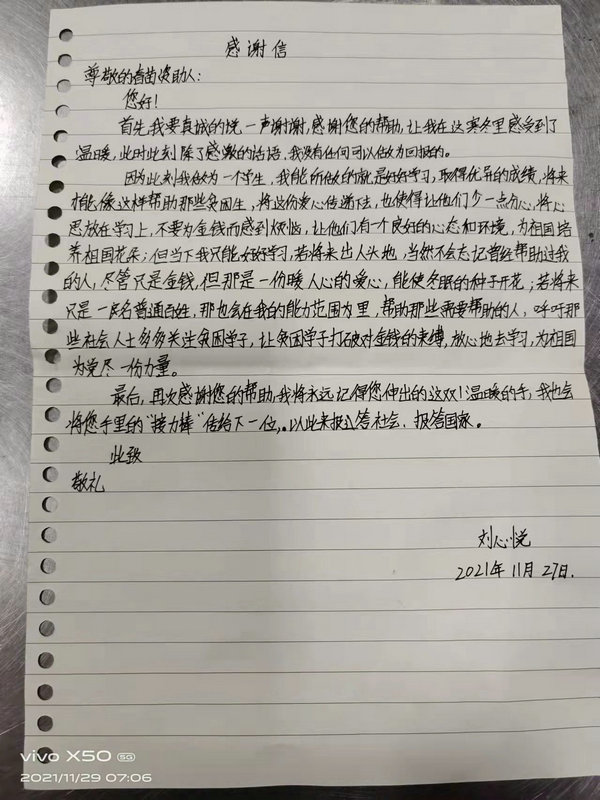 感谢信
尊敬的春苗资助人：
您好！
首先,我要真诚的说一声谢谢,感谢您的帮助,让我在这寒冬里感受到了
温暖,此时此刻除了感激的话语,我没有任何可以做为回报的。
因为此刻我做为一个学生,我能所做的就是好好学习,取得优异的成绩,将来
才能像这样帮助那些贫困生,将这份爱心传递下去,也使得让他们少一点分心,将心
思放在学习上,不要为金钱而感到烦恼,让他们有一个良好的心态和环境,为祖国培
养祖国花朵;但当下我只能好好学习,若将来出人头地,当然不会忘记曾经帮助过我
的人,尽管只是金钱,但那是一份暖人心的爱心,能使冬眠的种子开花;若将来
只是一名普通百姓,那也会在我的能力范围内里,帮助那些需要帮助的人,呼吁那
些社会人士多多关注贫困学子,让贫困学子打破对金钱的束缚,放心地去学习,为祖国
为党尽一份力量。
最后,再次感谢您的帮助,我将永远记得您伸出的这双温暖的手,我也会
将您手里的“接力棒”传给下一位,以此来报答社会、报答国家。
此致
敬礼
刘心悦
2021年11月27日.
vivo X50 5G
2021/11/29 07:06